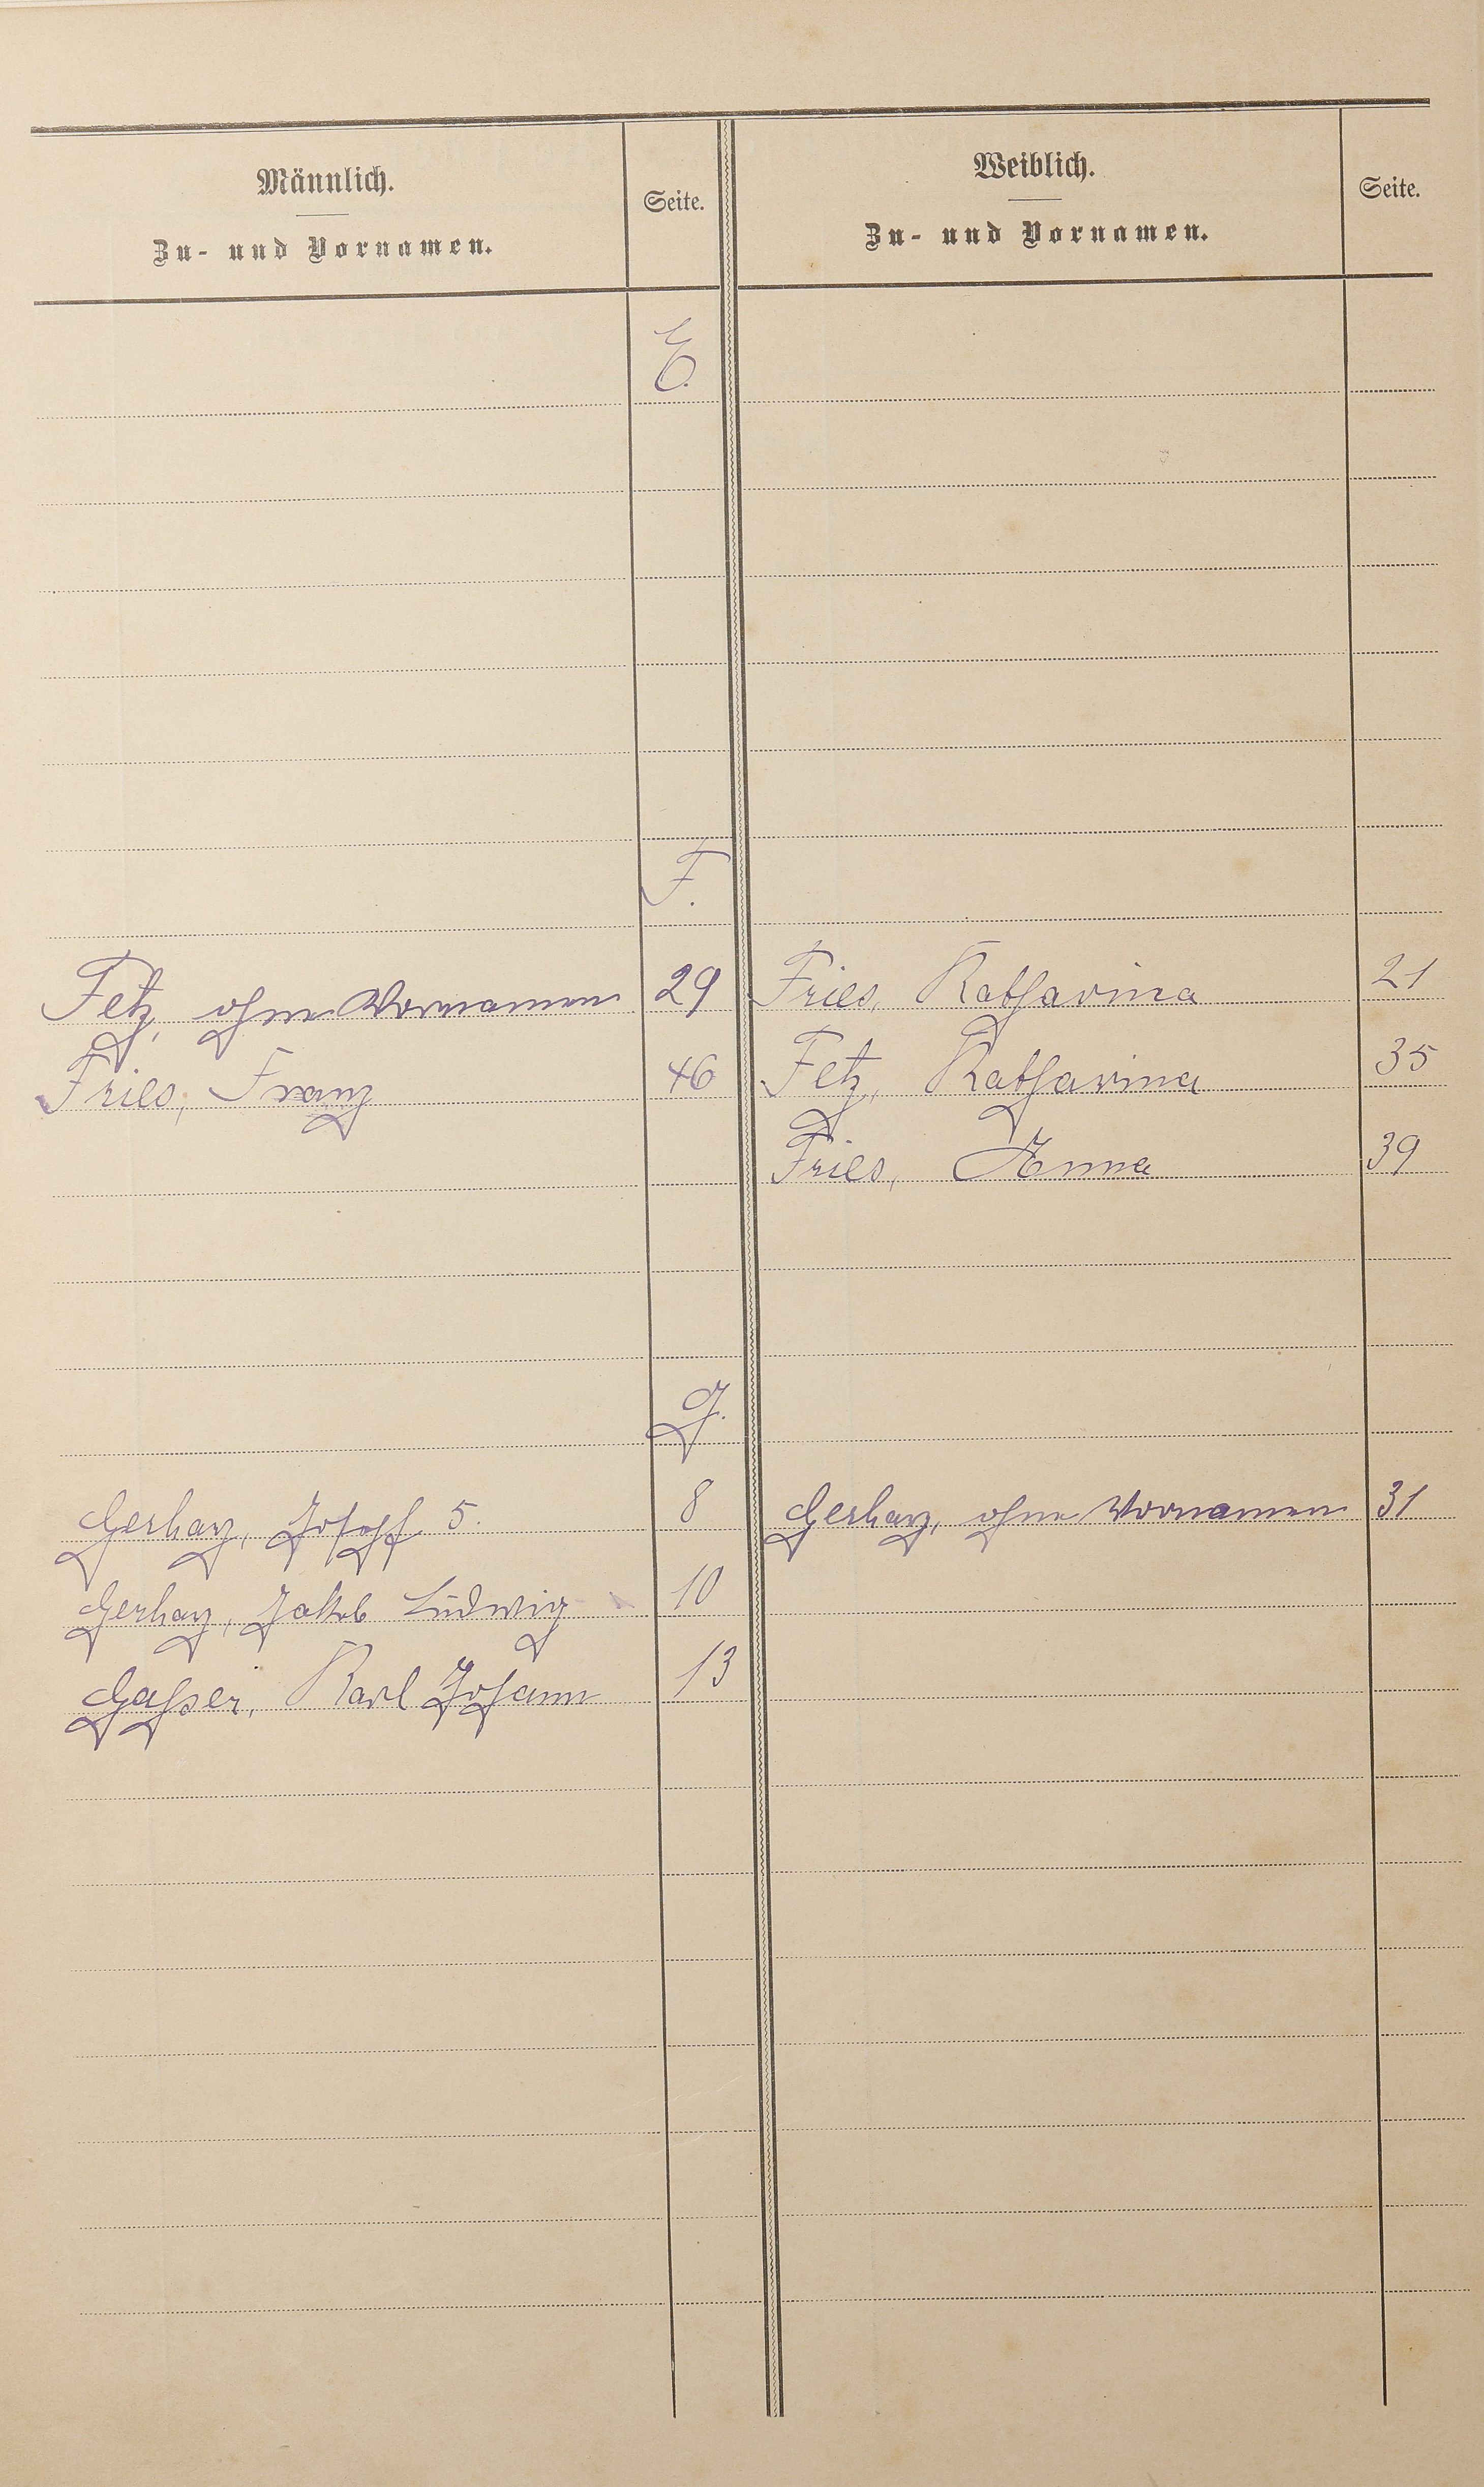 Männlich.
Zu- und Vornamen.
Seite.
Weiblich.
Zu- und Vornamen.
Seite.
E.
F.
Fetz, ohne Vornamen 29 Fries, Katharina 21
Fries, Franz 46 Fetz, Katharina 35
Fries, Anna 39
G.
Gerharz, Joseph 5. 8 Gerharz, ohne Vornamen 31
Gerharz, Jakob Ludwig 10
Gasser, Karl Johann 13